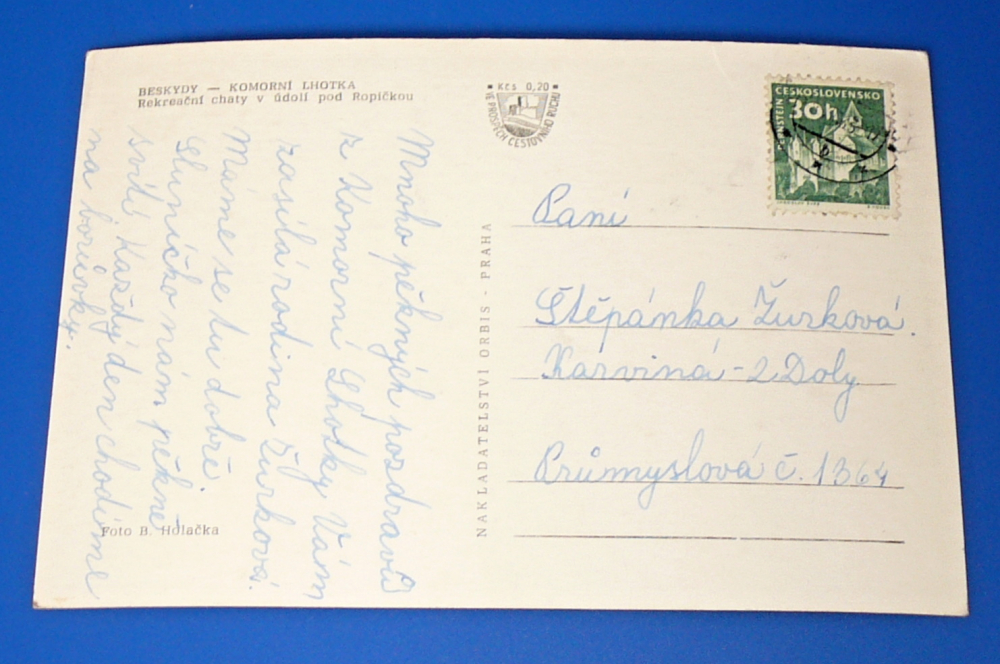 BESKYDY — KOMORNÍ LHOTKA
Rekreační chaty v údolí pod Ropičkou
Kčs 0,20
VE PROSPĚCH CESTOVNÍHO RUCHU
ČESKOSLOVENSKO
30h
Mnoho pěkných pozdravů
z Komorní Lhotky Vám
zasílá rodina Žurková.
Máme se tu dobře.
Sluníčko nám pěkně
svítí. Každý den chodíme
na borůvky.
NAKLADATELSTVÍ ORBIS - PRAHA
Paní
Štěpánka Žurková.
Karviná - 2 Doly
Průmyslová č. 1364
Foto B. Holačka